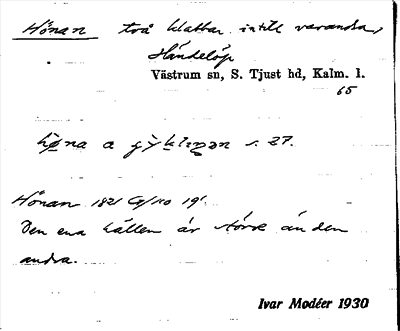 Hönan två klabbar intill varandra,
Händelöp
Västrum sn, S. Tjust hd, Kalm. l.
65
s. 27.
Hönan 1821 19
Den ena hällen är större än den
andra.
Ivar Modéer 1930